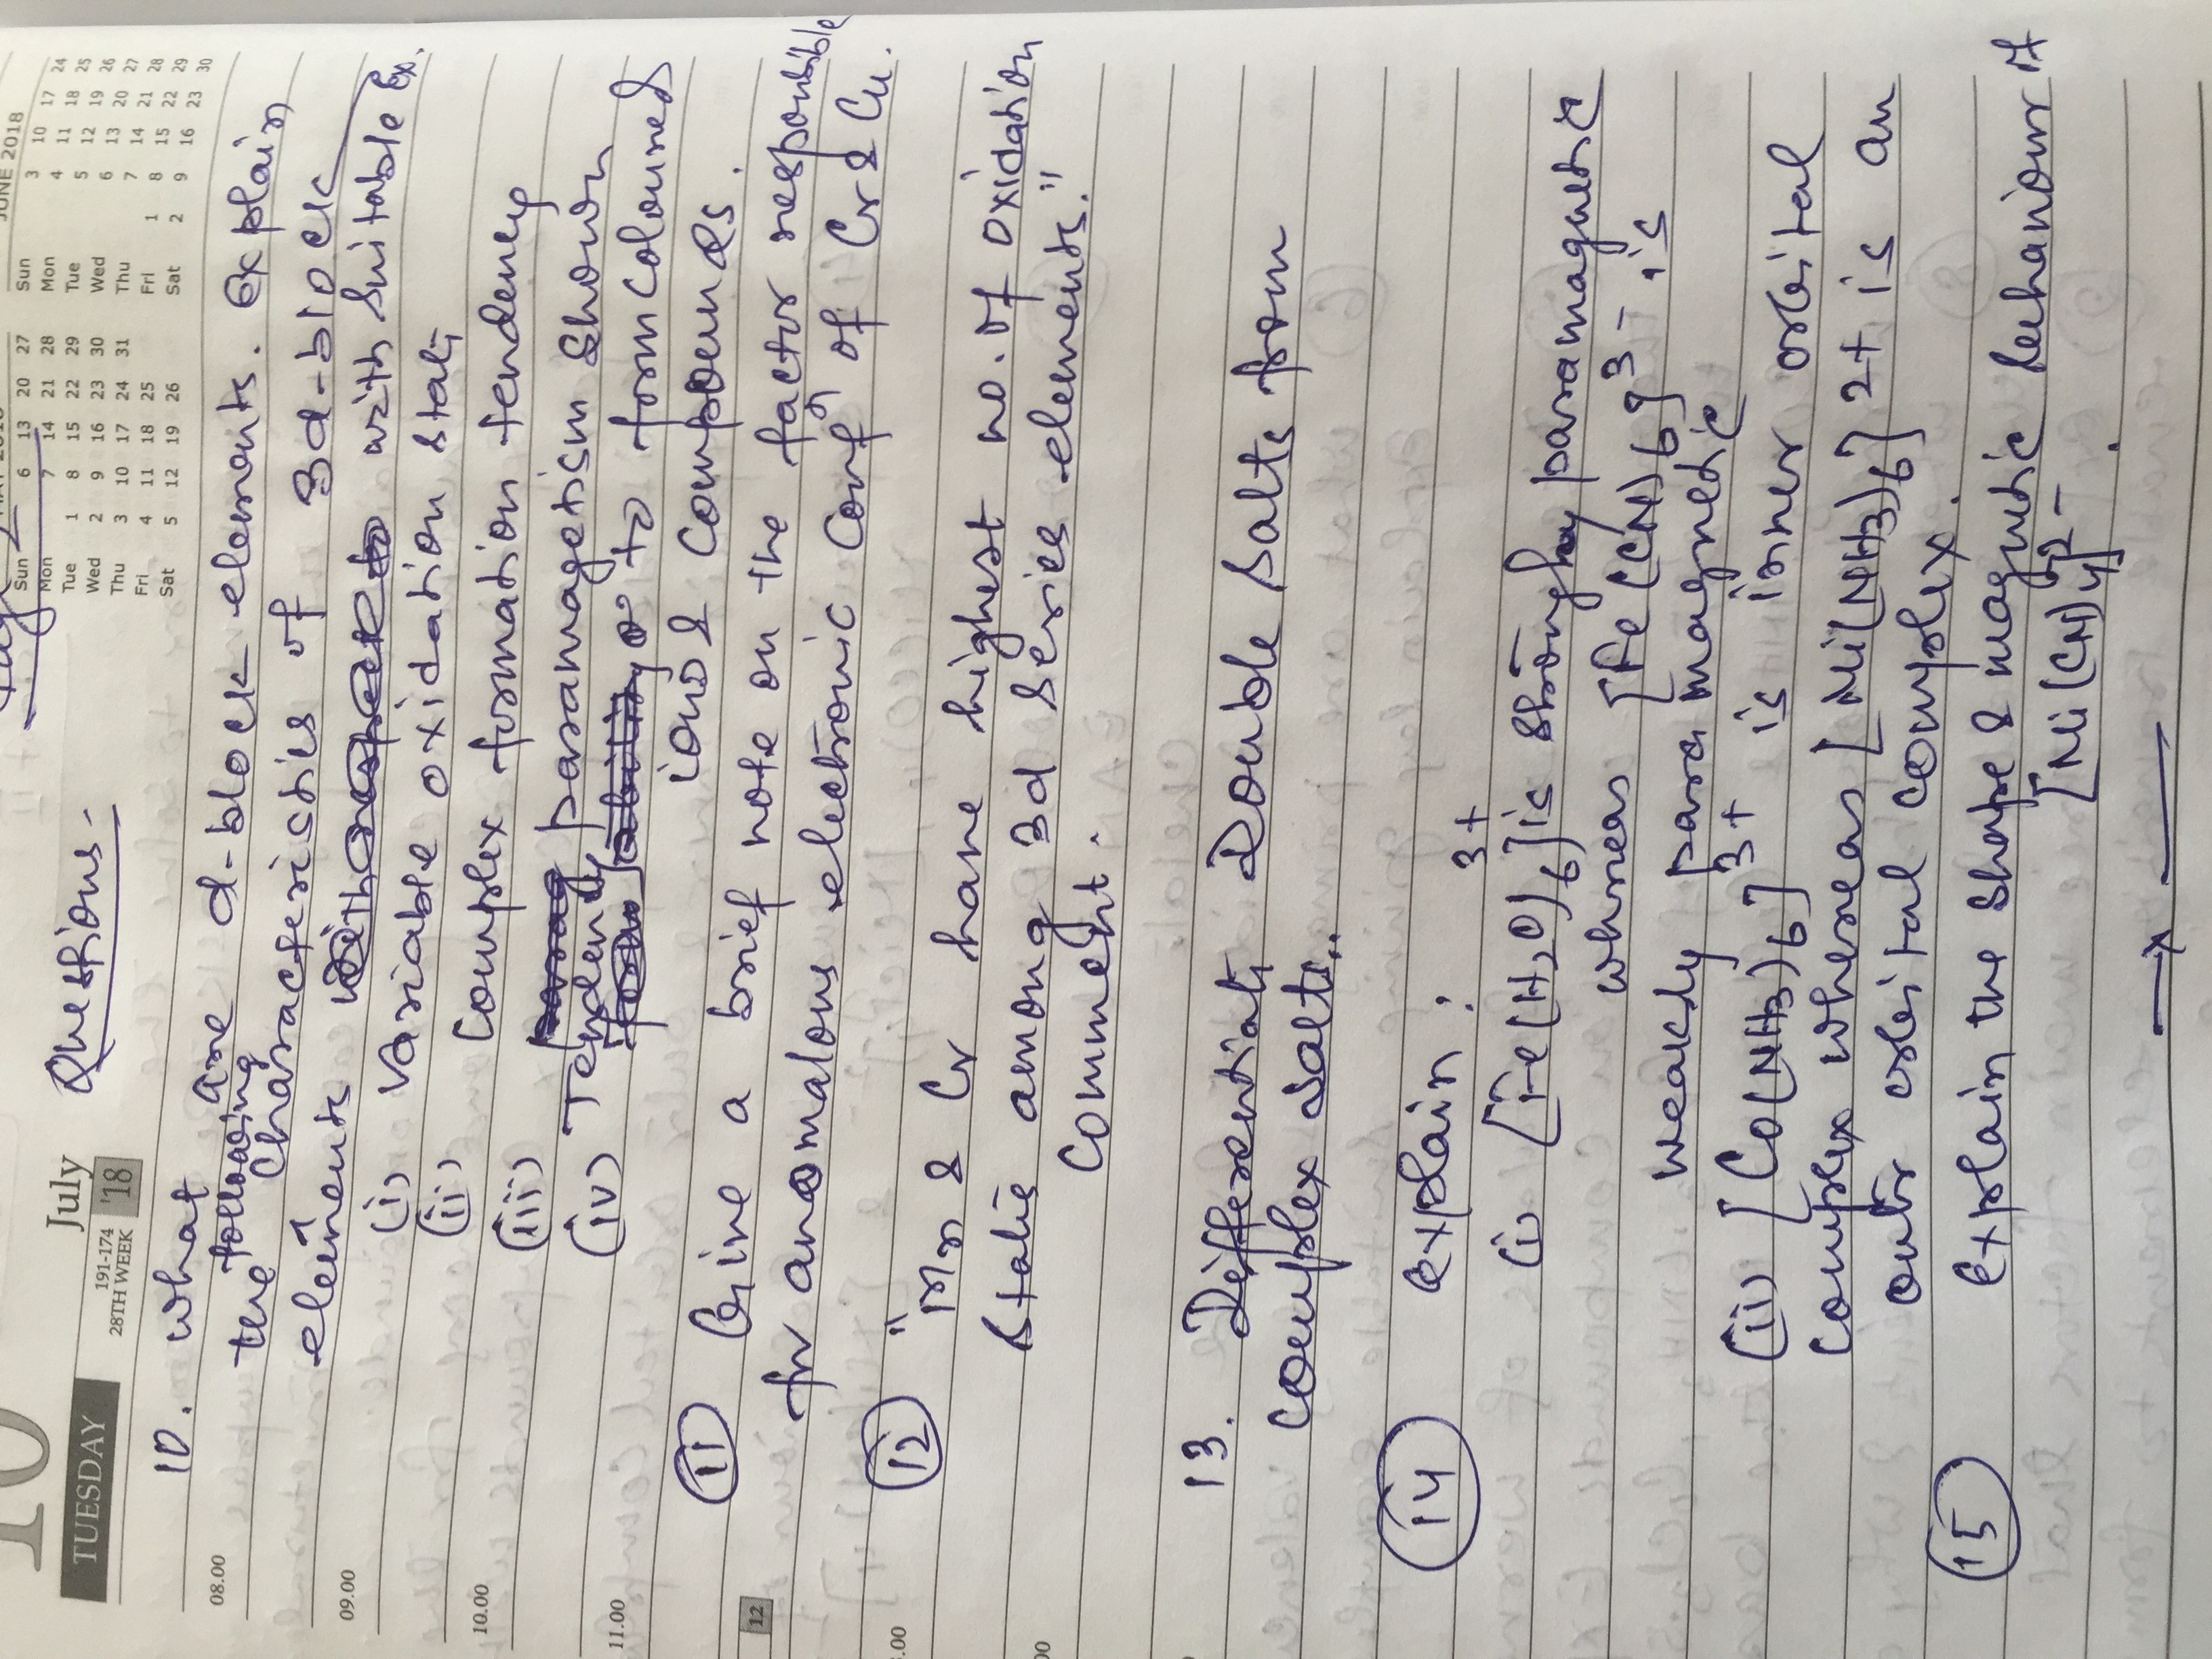 July
191-174
28TH WEEK '18
TUESDAY
JUNE 2018
Sun 6 13 20 27
Mon 7 14 21 28
Tue 1 8 15 22 29
Wed 2 9 16 23 30
Thu 3 10 17 24 31
Fri 4 11 18 25
Sat 5 12 19 26
Sun 3 10 17 24
Mon 4 11 18 25
Tue 5 12 19 26
Wed 6 13 20 27
Thu 7 14 21 28
Fri 1 8 15 22 29
Sat 2 9 16 23 30
Questions:-
08.00
09.00
10.00
11.00
12
10. What are d-block elements. Explain
the following characteristics of 3d-block
elements with suitable Ex.
(i) Variable oxidation state
(ii) Complex formation tendency
(iii) paramagnetism shown
(iv) Tendency to form coloured
ions & compounds.
11 Give a brief note on the factor responsible
for anomalous electronic conf of Cr & Cu.
12 "Mn & Cr have highest no. of oxidation
states among 3d series elements."
Comment.
13. Differentiate Double salts from
complex salts.
14 explain :
(i) [Fe(H2O)6]3+ is strongly paramagnetic
whereas [Fe(CN)6]3- is
weakly para magnetic
(ii) [Co(NH3)6]3+ is inner orbital
complex whereas [Ni(NH3)6]2+ is an
outer orbital complex.
15 Explain the shape & magnetic behaviour of
[Ni(CN)4]2-.
—x—